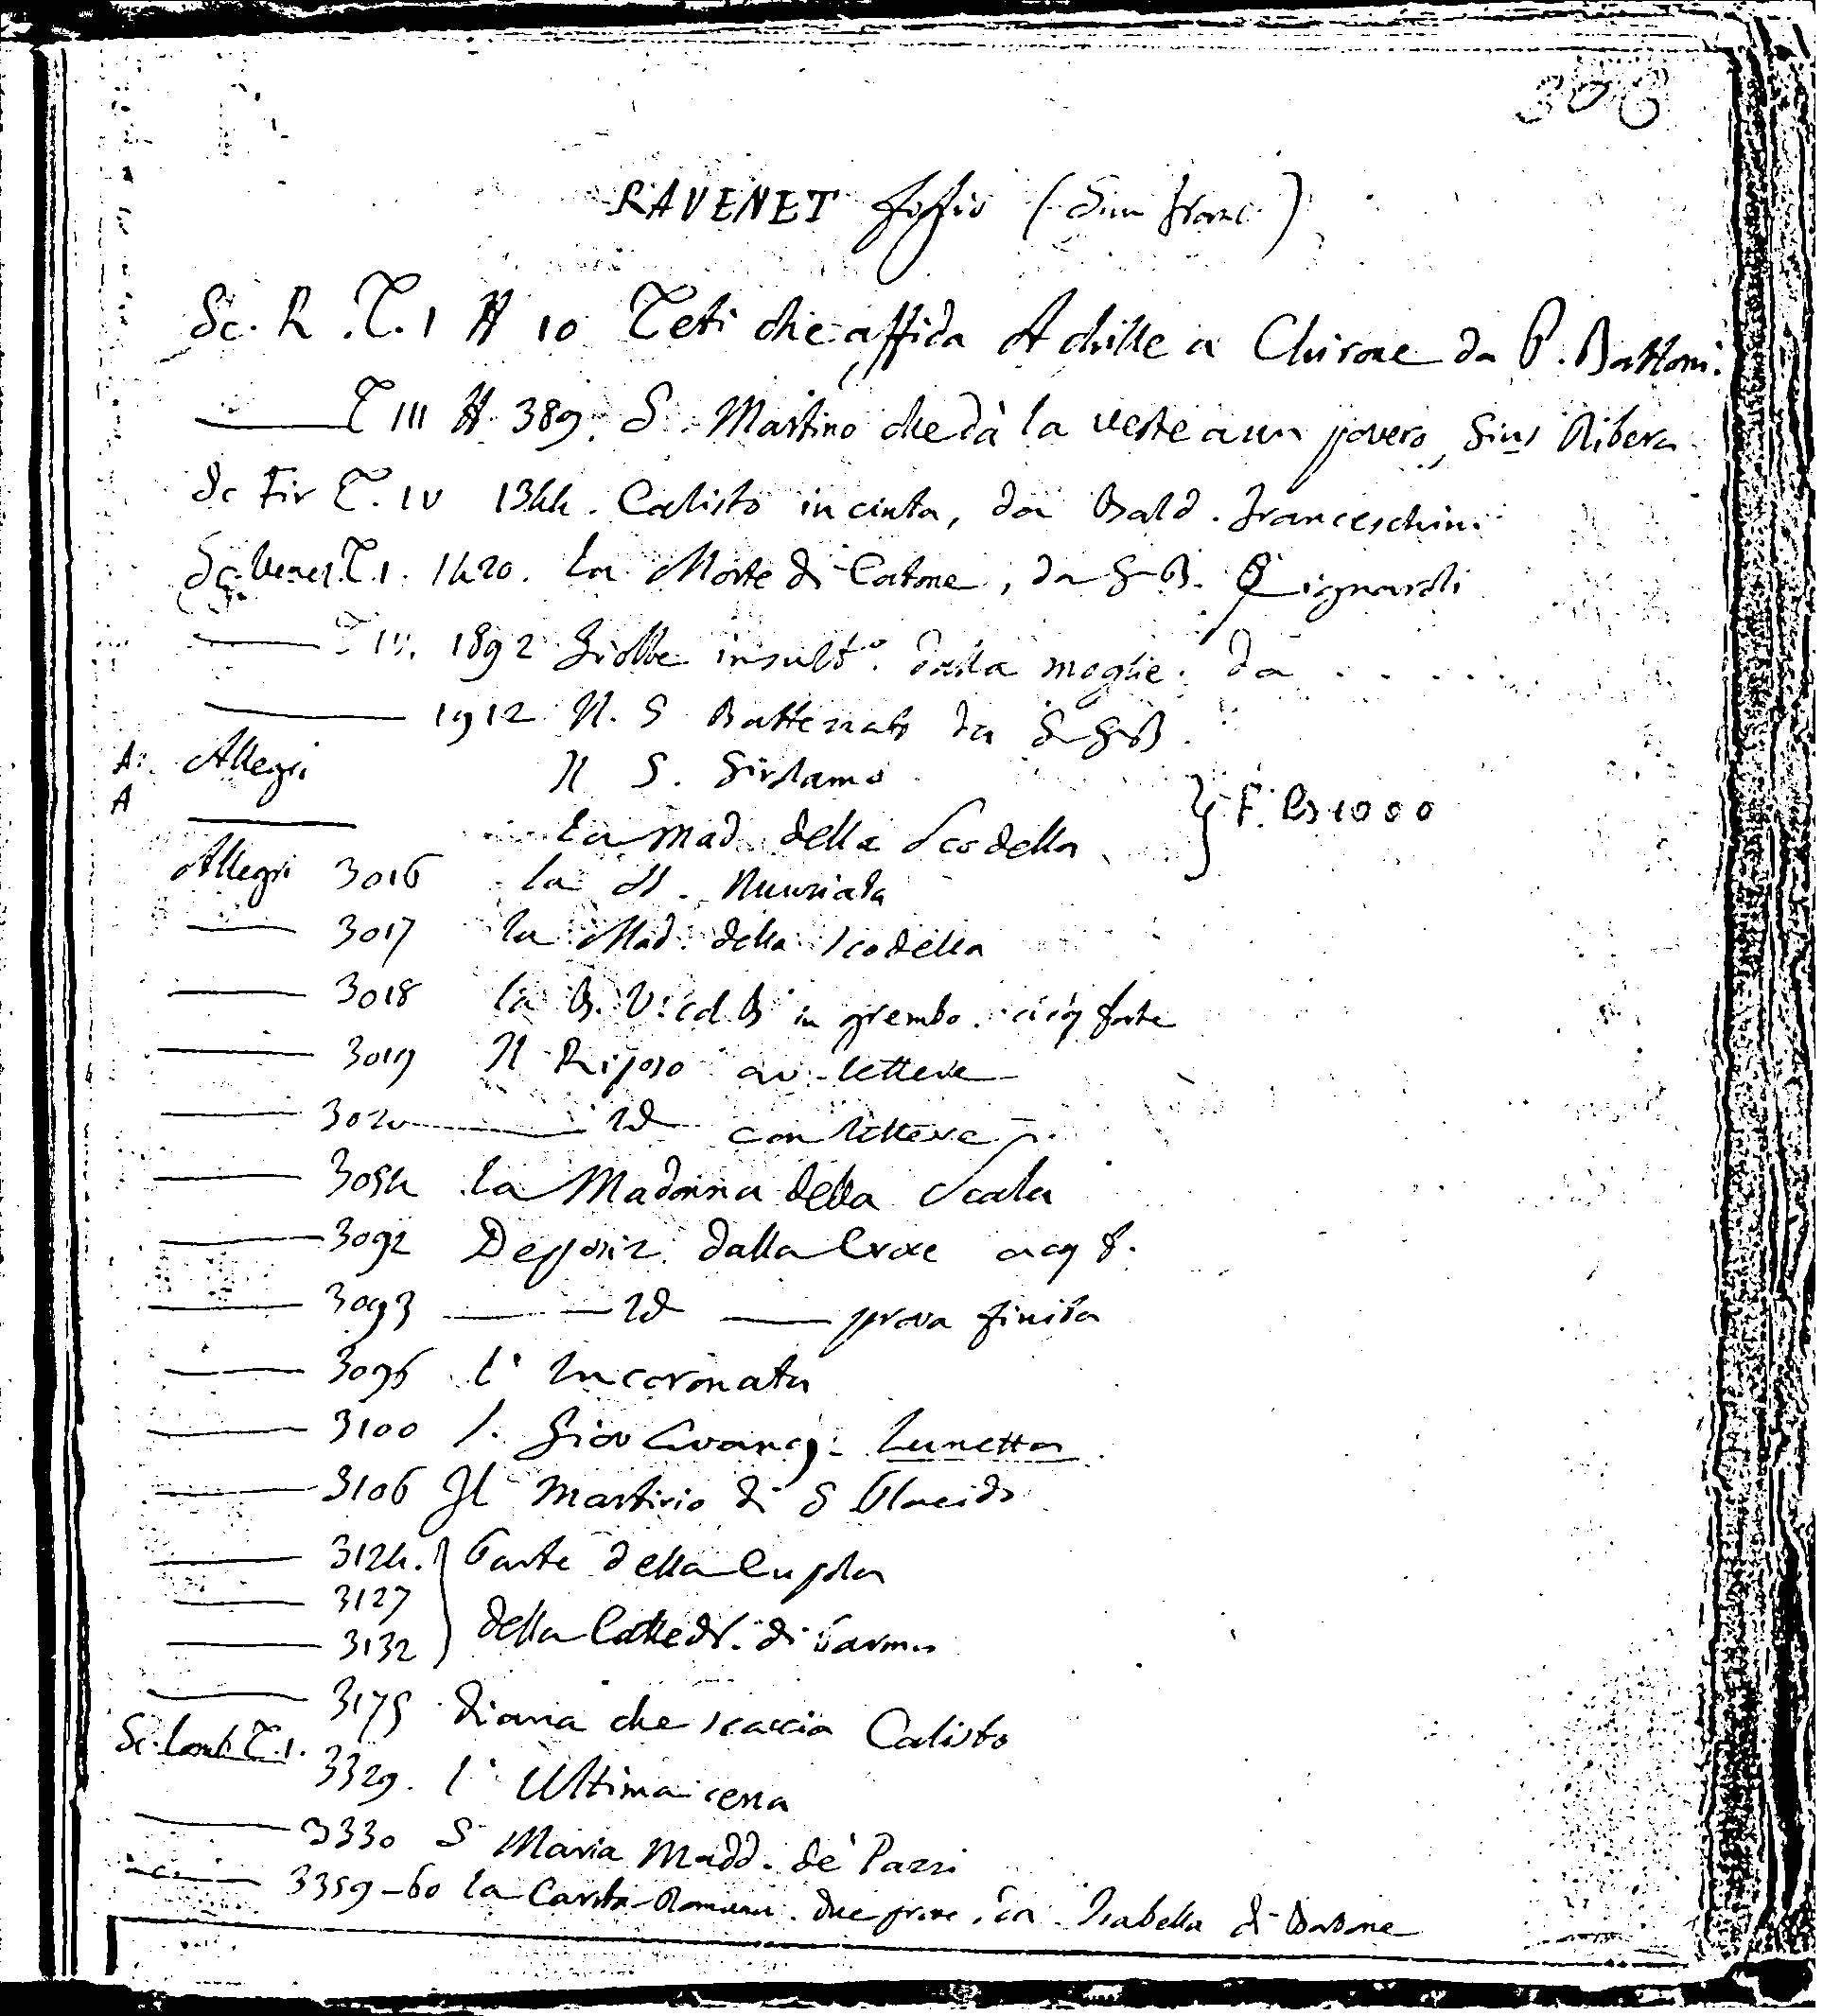 308
RAVENET figlio (Sim Franc.)
Sc. R. T. I N 10 Teti che affida Achille a Chirone da P. Battoni.
T III N. 389. S. Martino che dà la veste a un povero, Gius Ribera
Sc Fir T. IV 1344. Calisto incinta, da Bald. Franceschini
Sc. Venez. T. I. 1420. La Morte di Catone, da G-B. Pignardi
1892 Giobbe insult.o dalla moglie. da . . . . .
1912 N. S Battezzato da
A. Allegri Il S. Girolamo
A La Mad. della Scodella } F. B 1000
Allegri 3016 La SS. Nunziata
3017 la Mad. della Scodella
3018 la B. V. col B in grembo. acq forte
3019 Il Riposo av. lettere
3020 Id con lettere
3054 La Madonna della Scala
3092 Deposiz. dalla Croce acq f.
3093 Id prova finita
3096 L' Incoronata
3100 S. Giov Evang. Lunetta
3106 Il Martirio di S Placido
3124. } Parte della Cupola
3127
3132 } della Cattedr. di Parma
3175 Diana che scaccia Calisto
Sc. Lomb T. I. 3329. L' Ultima cena
3330 S Maria Madd. de' Pazzi
3359-60 La Carità Romana. due prove, Isabella di Borbone